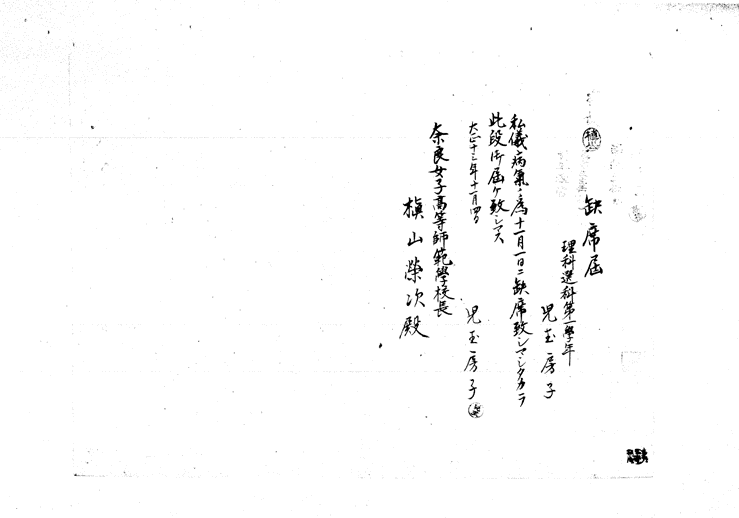 缺席届
理科選科第一學年
児玉房子
私儀病氣ノ爲十一月一日ニ缺席致シマシタカラ
此段御届ケ致シマス
大正十三年十一月四日
児玉房子
奈良女子高等師範學校長
槇山榮次殿